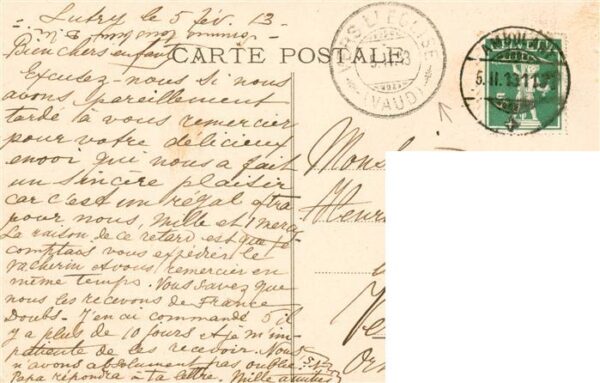 Lutry le 5 fév. 13
Bien chers enfants
CARTE POSTALE
Excusez-nous si nous
avons pareillement
tardé à vous remercier
pour votre délicieux
envoi qui nous a fait
un sincère plaisir
car c'est un régal extra
pour nous, mille et 1 merci
La raison de ce retard est que je
comptais vous expédier le
vacherin & vous remercier en
même temps. Vous savez que
nous les recevons de France
Doubs. J'en ai commandé 5 il
y a plus de 10 jours & je m'im-
patiente de les recevoir. Nous
n'avons absolument pas oublié
Papa répondra à ta lettre. Mille amitiés
(VAUD)
AMBULANT
5.II.13
Monsieur
Henri